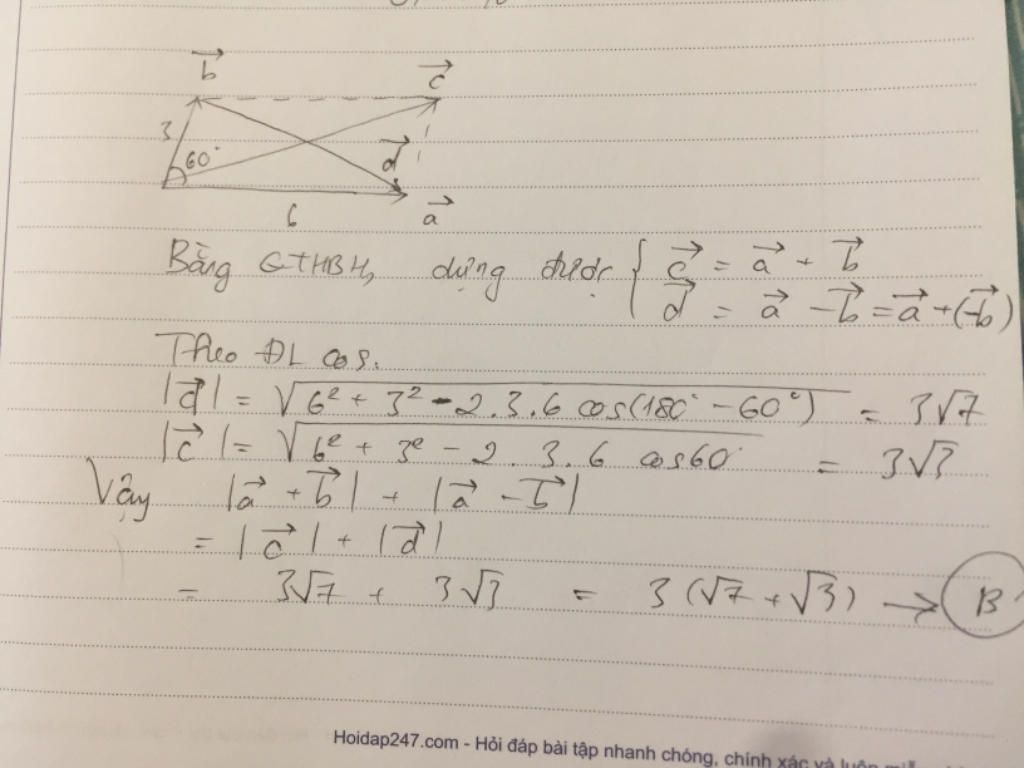 b⃗ c⃗
3 60° d⃗
6 a⃗
Bằng QTHBH, dựng được { c⃗ = a⃗ + b⃗
d⃗ = a⃗ - b⃗ = a⃗ + (-b⃗)
Theo ĐL cos.
|d⃗| = √(6² + 3² - 2.3.6 cos(180° - 60°)) = 3√7
|c⃗| = √(6² + 3² - 2.3.6 cos60°) = 3√3
Vậy |a⃗ + b⃗| + |a⃗ - b⃗|
= |c⃗| + |d⃗|
= 3√7 + 3√3 = 3(√7 + √3) → B
Hoidap247.com - Hỏi đáp bài tập nhanh chóng, chính xác và luôn